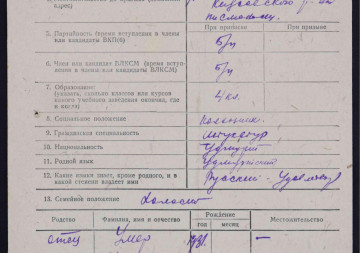 края)
Кизовского р-на
5. Партийность (время вступления в члены
или кандидаты ВКП(б)
При приписке
При призыве
б/п
6. Член или кандидат ВЛКСМ (время вступ-
ления в члены или кандидаты ВЛКСМ)
б/п
7. Образование:
(указать, сколько классов или курсов
какого учебного заведения окончил, где
и когда)
4 кл.
8. Социальное положение
колхозник
9. Гражданская специальность
штукатур
10. Национальность
Удмурт
11. Родной язык
Удмуртский
12. Какие языки знает, кроме родного, и в
какой степени владеет ими
Русский - Удовлетвор
13. Семейное положение
Холост
Родство
Фамилия, имя и отчество
Рождение
год
месяц
Местожительство
отец
Умер
—